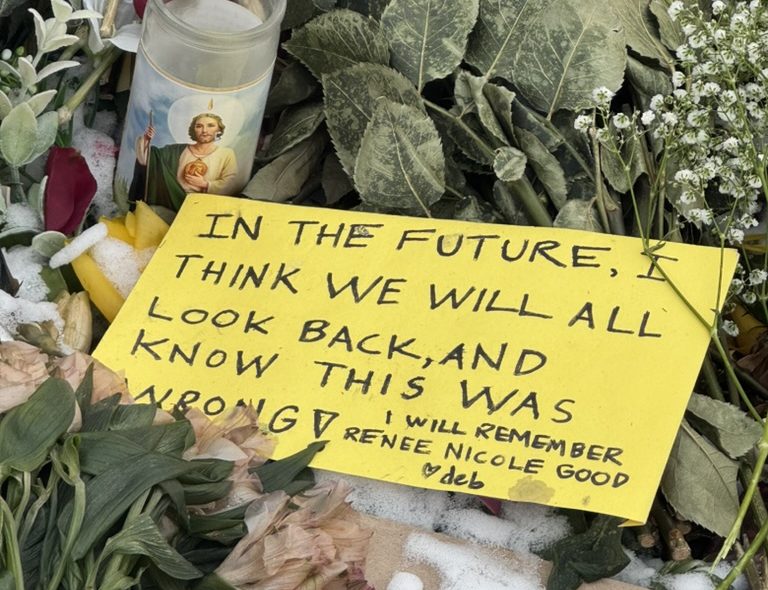 IN THE FUTURE, I
THINK WE WILL ALL
LOOK BACK, AND
KNOW THIS WAS
WRONG
I WILL REMEMBER
RENEE NICOLE GOOD
♡deb